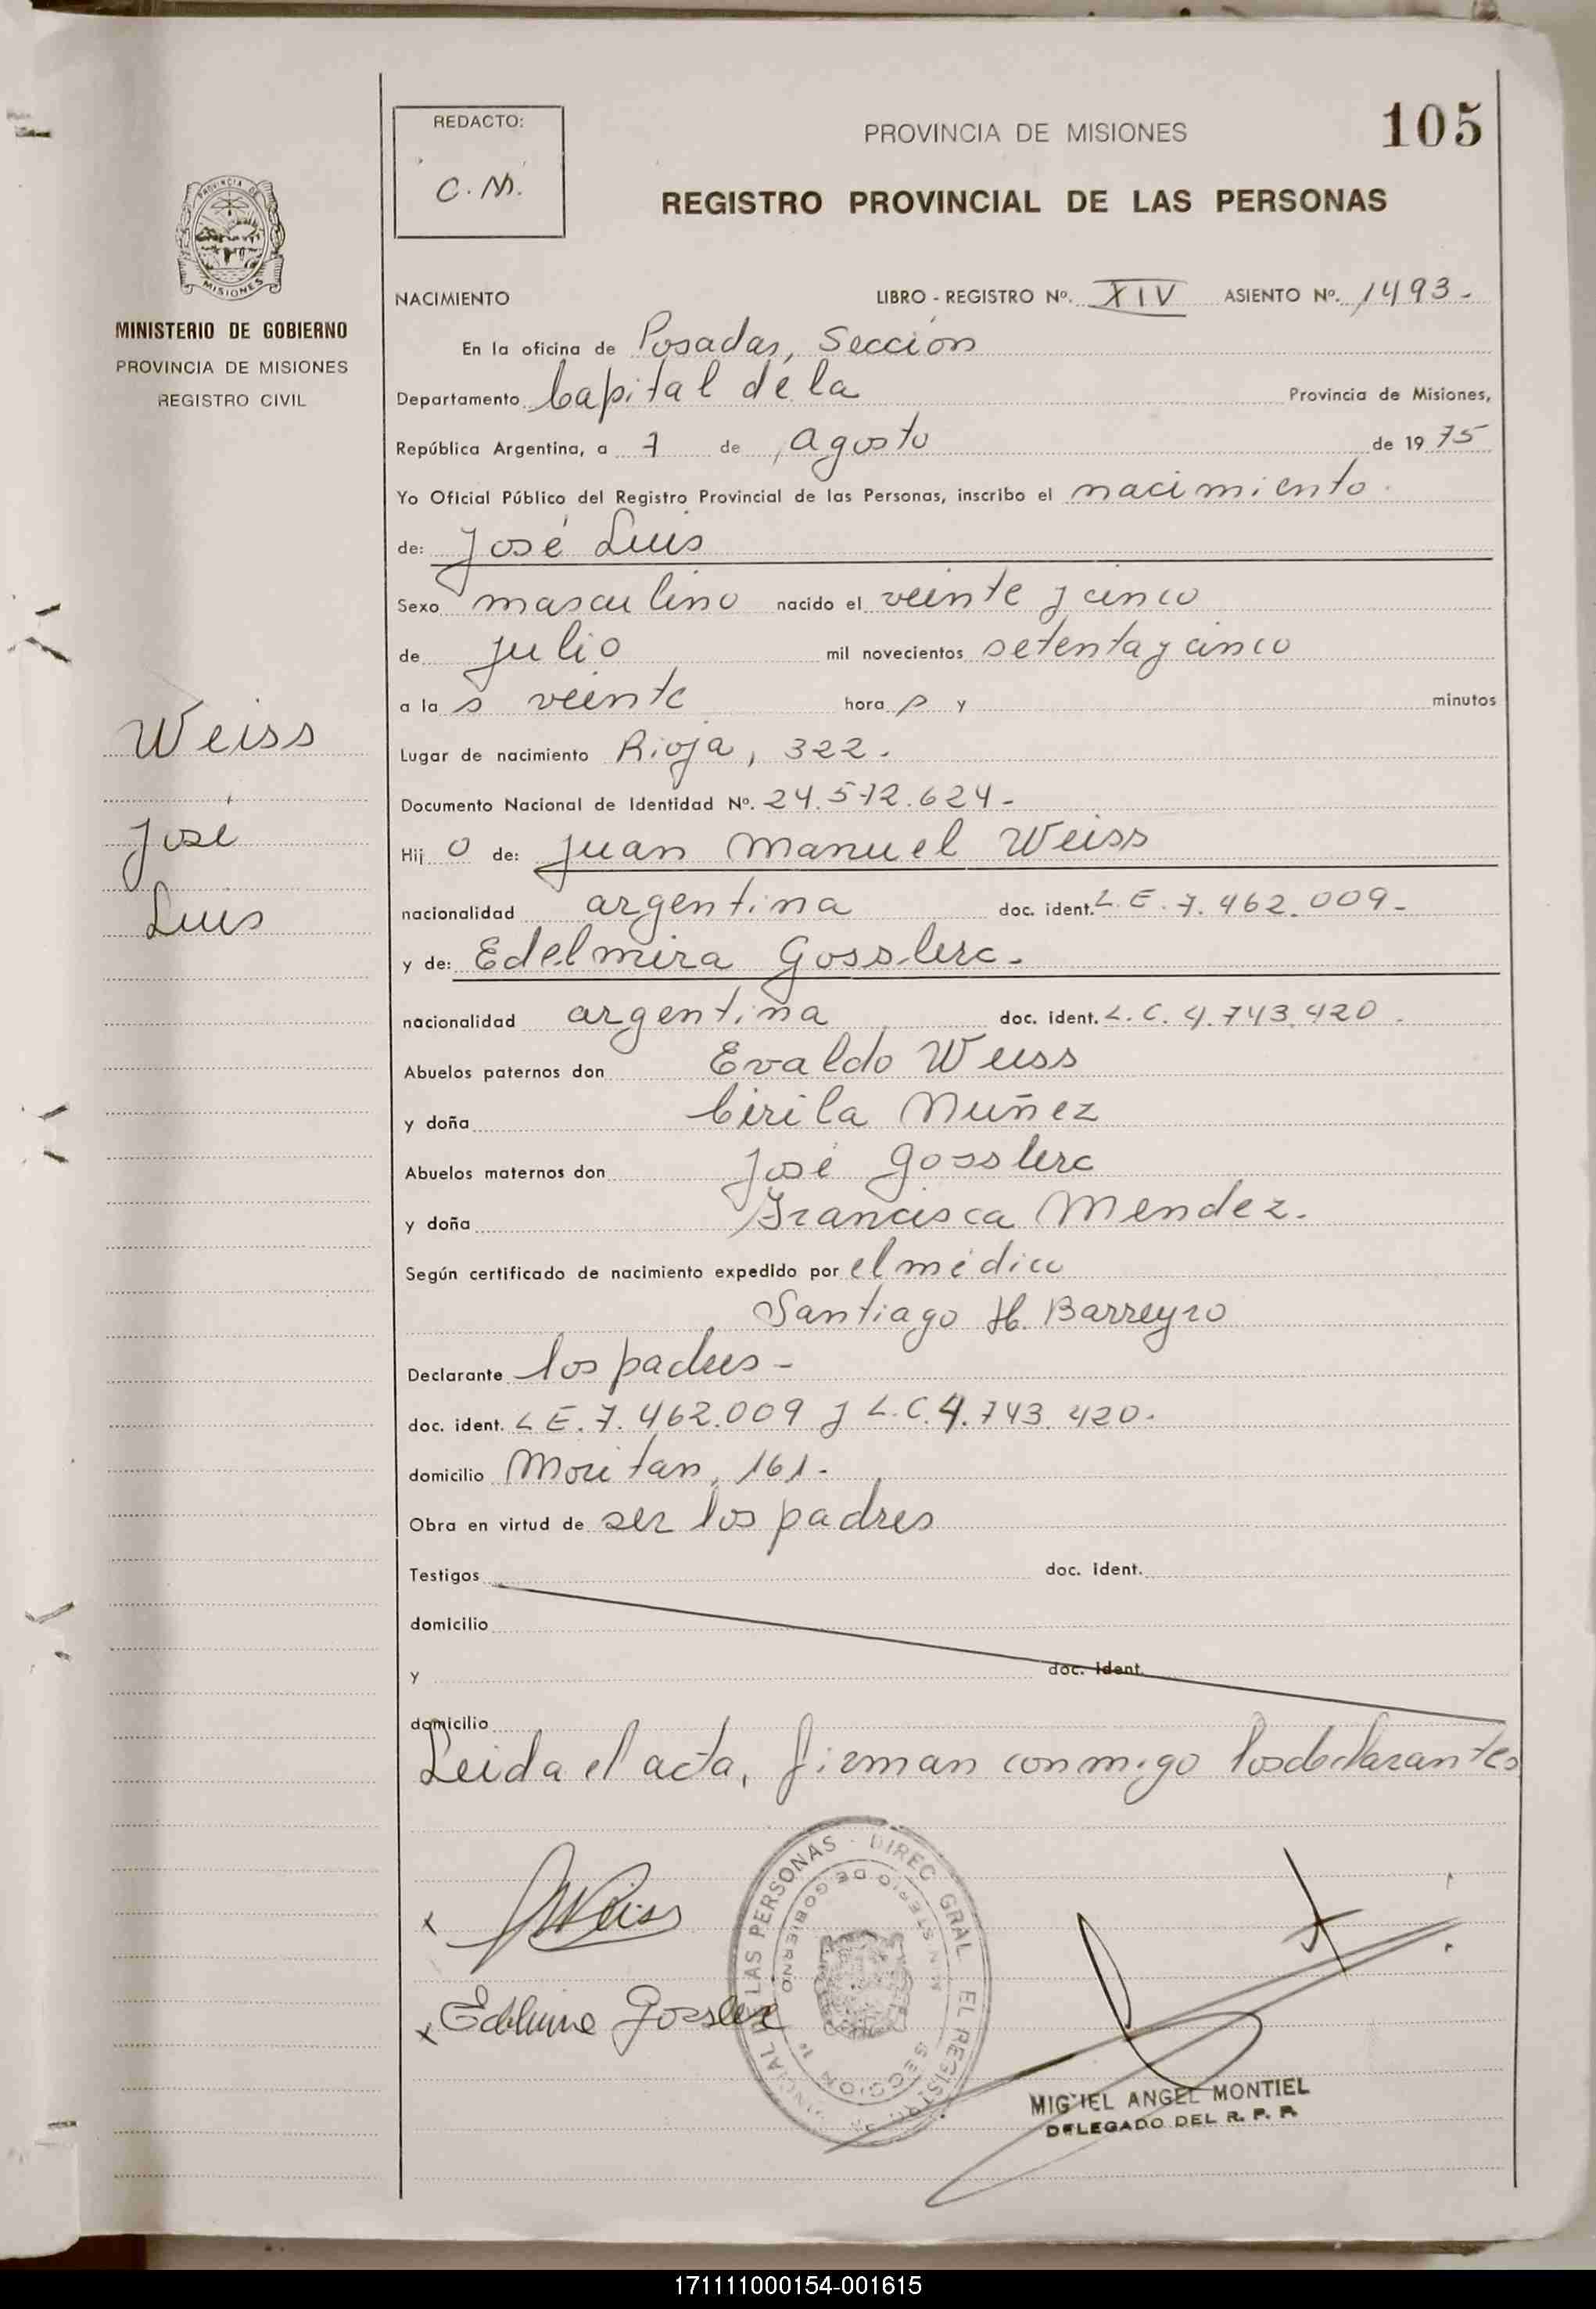 REDACTO:
C.M.
PROVINCIA DE MISIONES
105
REGISTRO PROVINCIAL DE LAS PERSONAS
MISIONES
MINISTERIO DE GOBIERNO
PROVINCIA DE MISIONES
REGISTRO CIVIL
NACIMIENTO LIBRO - REGISTRO Nº. XIV ASIENTO Nº. 1493-
En la oficina de Posadas, Sección
Departamento Capital de la Provincia de Misiones,
República Argentina, a 7 de Agosto de 1975
Yo Oficial Público del Registro Provincial de las Personas, inscribo el nacimiento.
de: José Luis
Sexo masculino nacido el veinte y cinco
de julio mil novecientos setenta y cinco
a la s veinte hora s y minutos
Lugar de nacimiento Rioja, 322.
Documento Nacional de Identidad Nº. 24.572.624-
Hij o de: Juan Manuel Weiss
nacionalidad argentina doc. ident. L.E. 7.462.009-
y de: Edelmira Gosslerc.
nacionalidad argentina doc. ident. L.C. 4.743.420.
Abuelos paternos don Evaldo Weiss
y doña Cirila Nuñez
Abuelos maternos don José Gosslerc
y doña Francisca Mendez.
Según certificado de nacimiento expedido por el médico
Santiago H. Barreyro
Declarante los padres-
doc. ident. L E. 7.462.009 y L.C. 4.743.420.
domicilio Moritan, 161.
Obra en virtud de ser los padres
Testigos doc. ident.
domicilio
y doc. ident.
domicilio
Leida el acta, firman conmigo los declarantes
Weiss
José
Luis
x Weiss
x Edelmira Gosslerc
DIREC GRAL. EL REGISTRO PROVINCIAL DE LAS PERSONAS
MINISTERIO DE GOBIERNO
SECCION 1ª
MIGUEL ANGEL MONTIEL
DELEGADO DEL R. P. P.
171111000154-001615